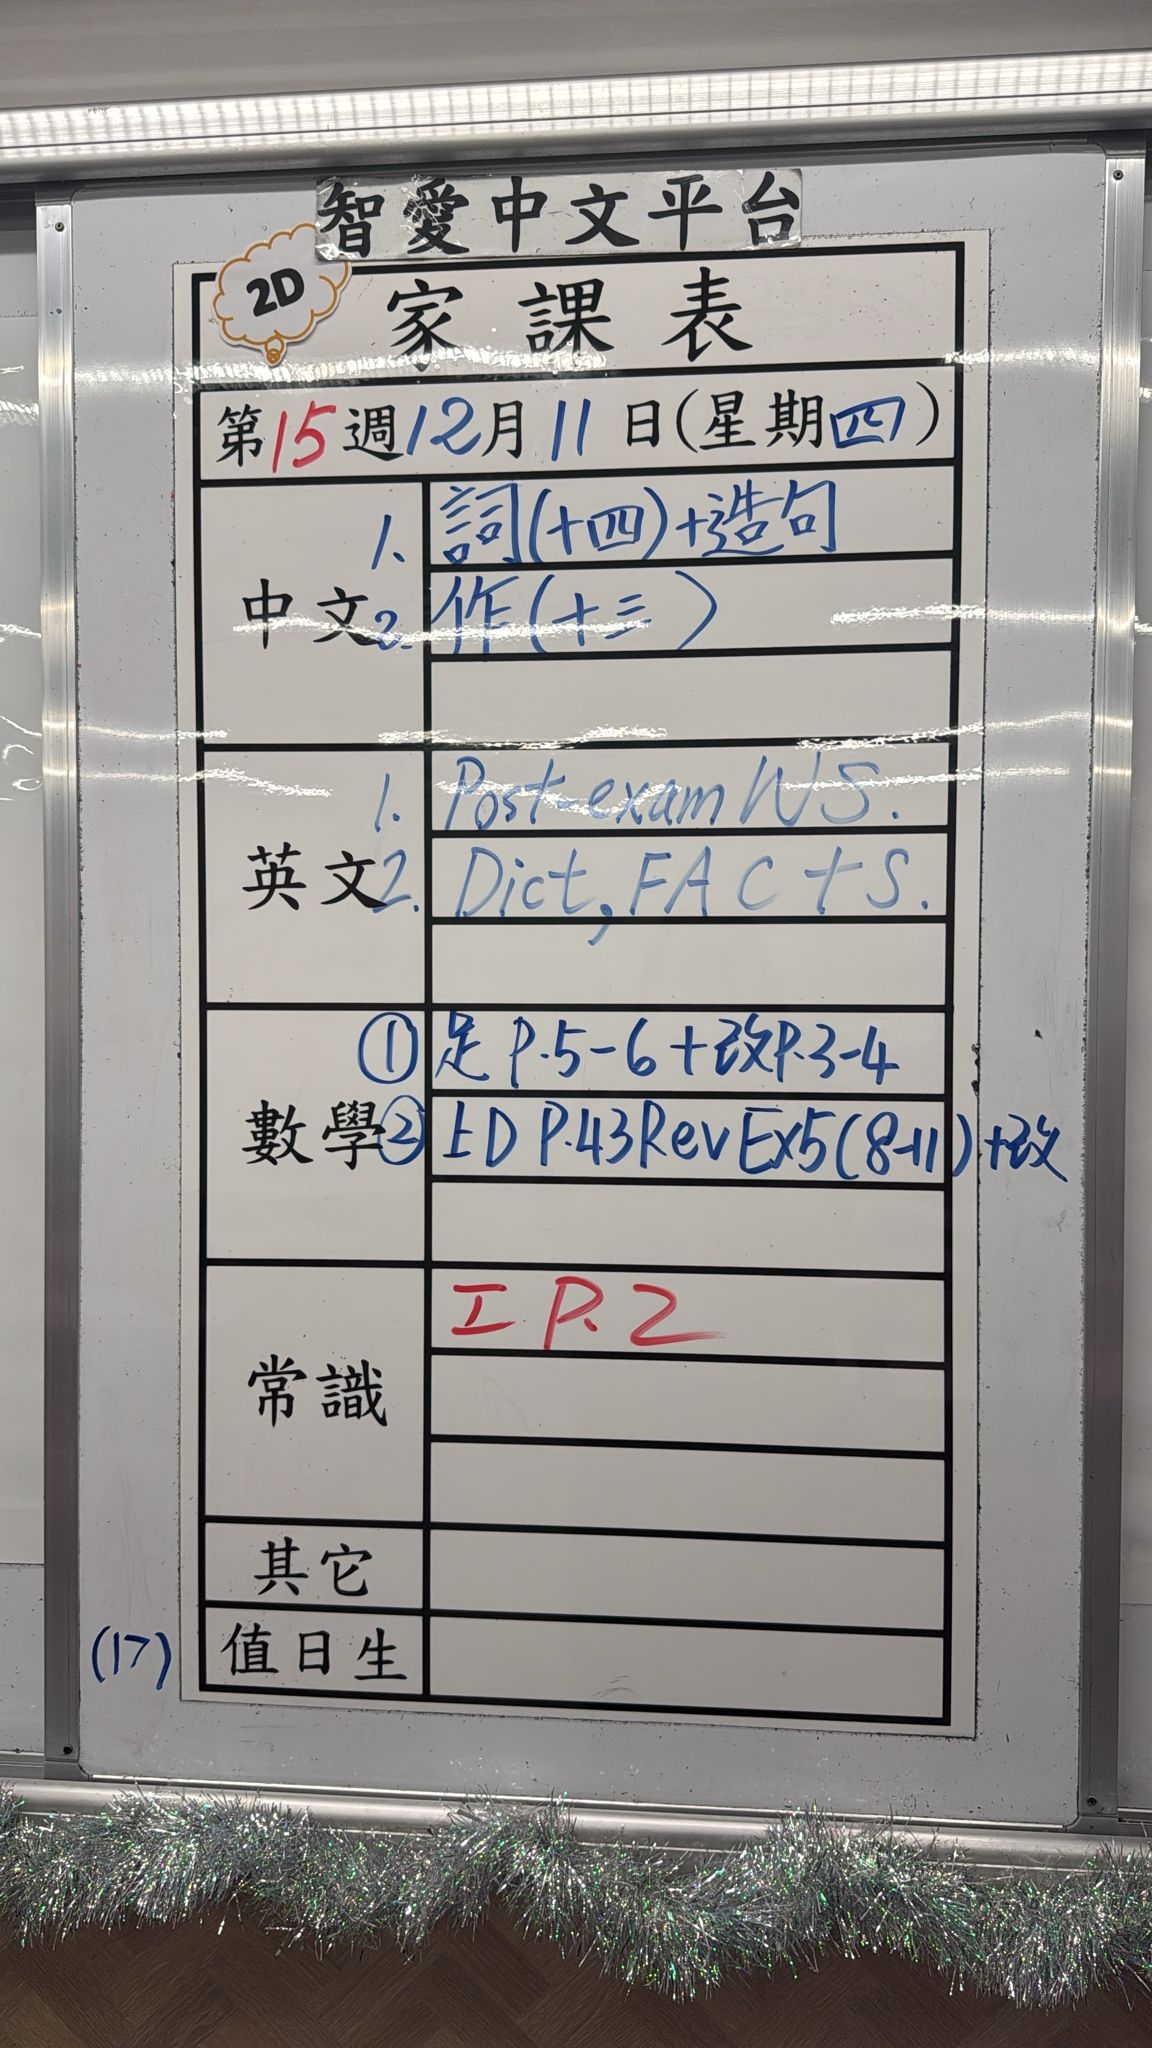 智愛中文平台
2D
家課表
第15週12月11日(星期四)
中文
1. 詞(十四)+造句
2. 作(十三)
英文
1. Post-exam WS.
2. Dict, FACTS.
數學
① 足P.5-6+改P.3-4
② 上D P.43 Rev Ex5(8-11)+改
常識
工 P.2
其它
(17) 值日生